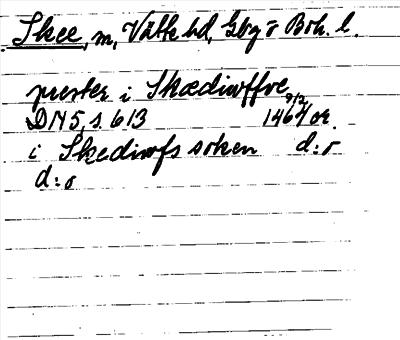 Skee, m, Vätte hd, Gbg o Boh. l.
prester i Skædiwffve
DN 5, s. 613 9/2 1464 or.
i Skediwfs soken d:o
d:o